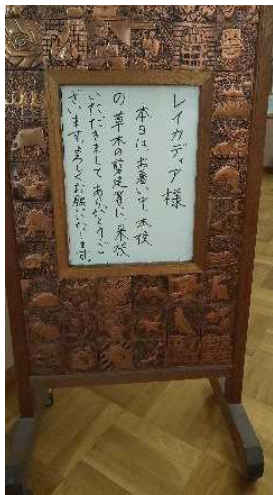 レイカディア様
本日は、お暑い中本校
の草木の剪定等に来校
いただきまして、ありがとうご
ざいます。よろしくお願いいたします。